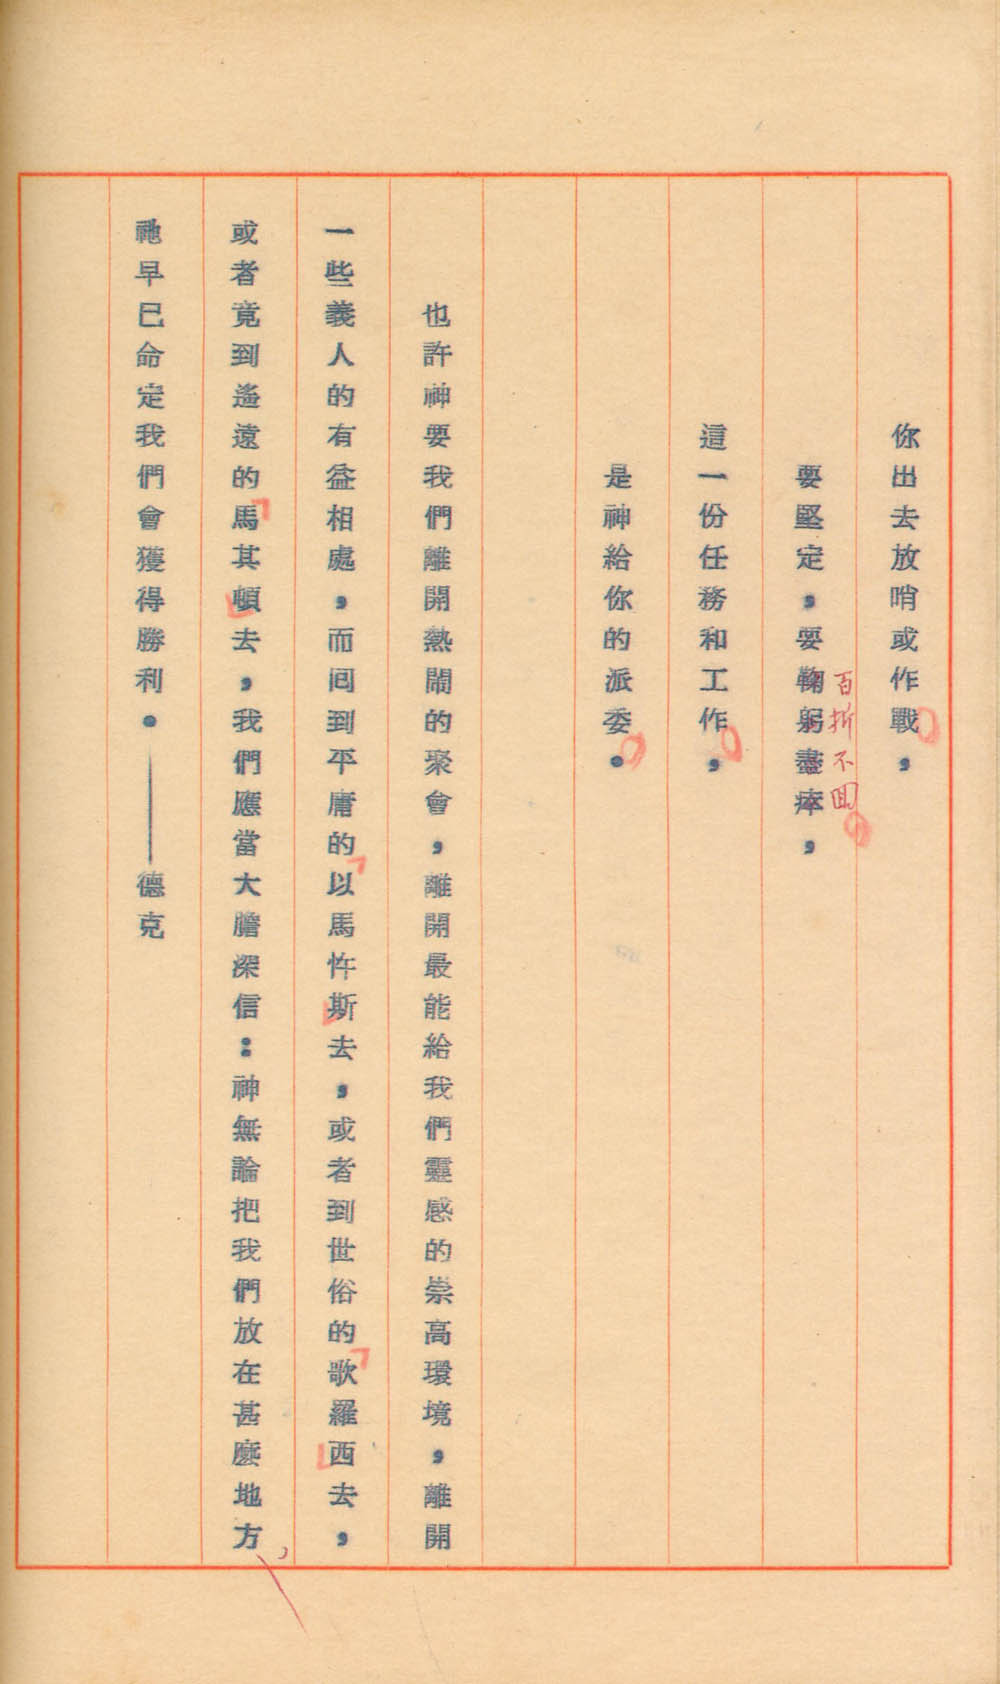 你出去放哨或作戰，
要堅定，要鞠躬盡瘁，
百折不回
這一份任務和工作，
是神給你的派委。
也許神要我們離開熱鬧的聚會，離開最能給我們靈感的崇高環境，離開
一些義人的有益相處，而回到平庸的「以馬忤斯」去，或者到世俗的「歌羅西」去，
或者竟到遙遠的「馬其頓」去，我們應當大膽深信：神無論把我們放在甚麼地方，
祂早已命定我們會獲得勝利。——德克